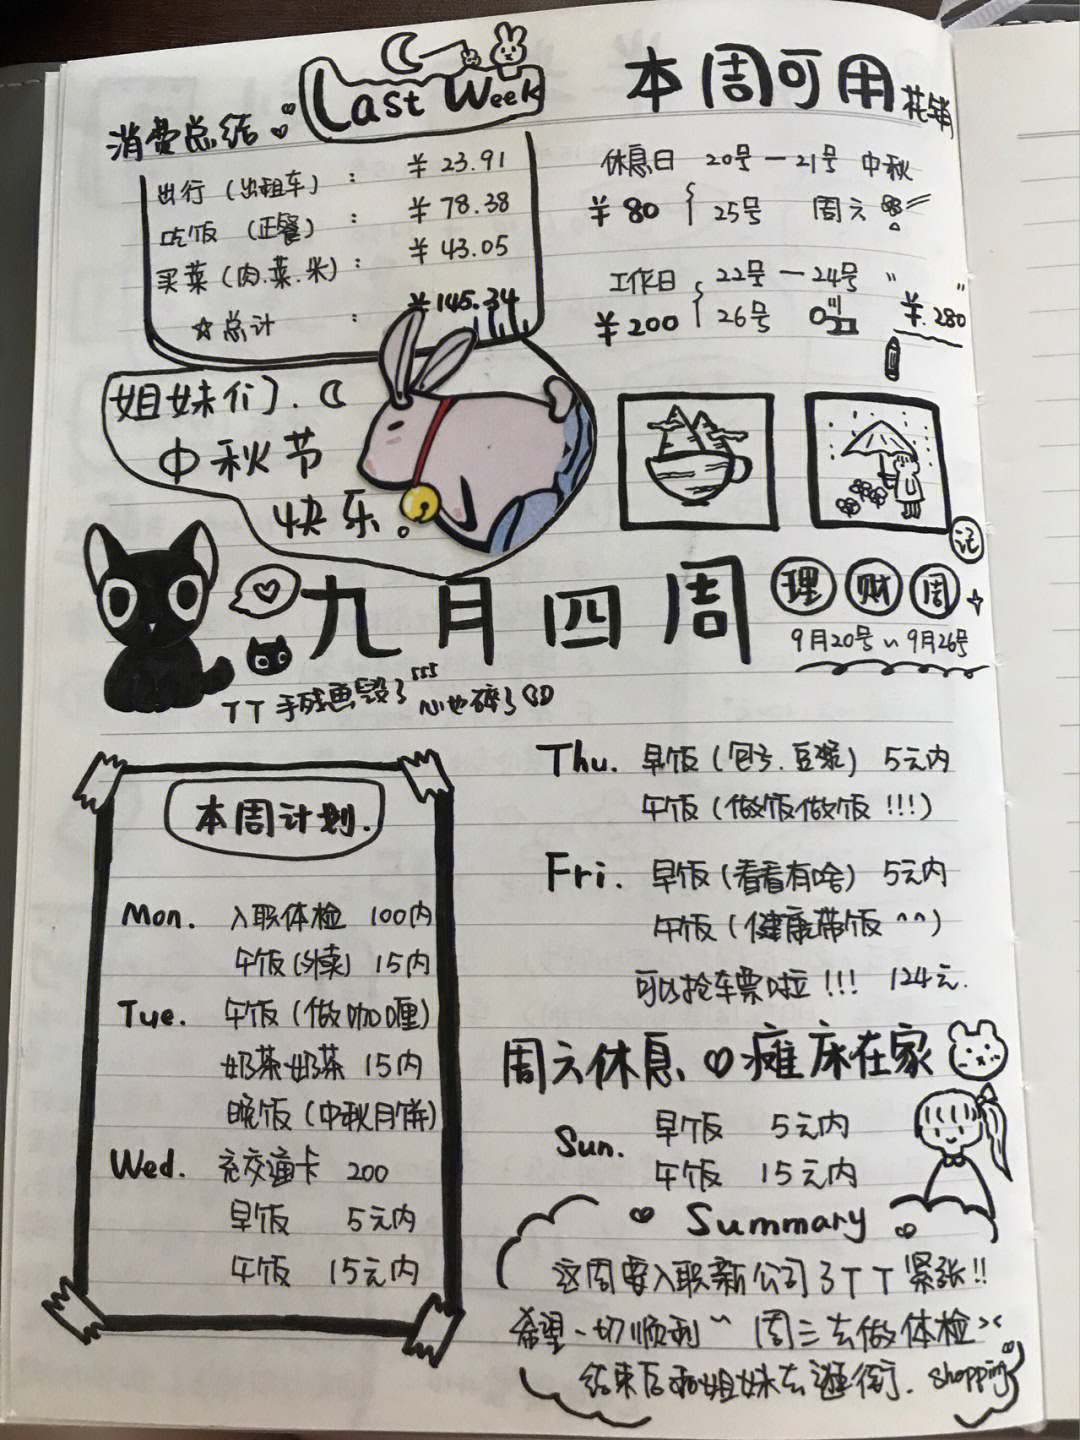 Last Week
消费总结
出行（出租车）： ￥23.91
吃饭（正餐）： ￥78.38
买菜（肉.菜.米）： ￥43.05
☆总计： ￥145.34
本周可用花销
休息日 20号—21号 中秋
￥80 25号 周六
工作日 22号—24号
￥200 26号 ￥280
姐妹们.
中秋节
快乐。
九月四周
理财周记
9月20号~9月26号
TT手残画毁了555心也碎了
本周计划.
Mon. 入职体检 100内
午饭(外卖) 15内
Tue. 午饭(做咖喱)
奶茶奶茶 15内
晚饭(中秋月饼)
Wed. 充交通卡 200
早饭 5元内
午饭 15元内
Thu. 早饭(包子.豆浆) 5元内
午饭(做饭做饭!!!)
Fri. 早饭(看看有啥) 5元内
午饭(健康带饭^^)
可以抢车票啦!!! 124元.
周六休息 瘫床在家
Sun. 早饭 5元内
午饭 15元内
Summary
这周要入职新公司了TT紧张!!
希望一切顺利^^ 周三去做体检><
结束后和姐妹去逛街. shopping